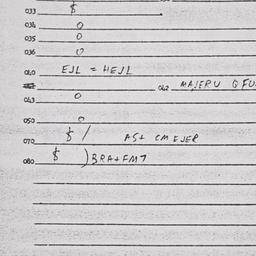 033 $
034 0
035 0
036 0
040 EJL = HEJL
042 MAJERU Q FU
043 0
050 0
070 $ / AS+ CMEJER
080 $ ) BRA+FMT